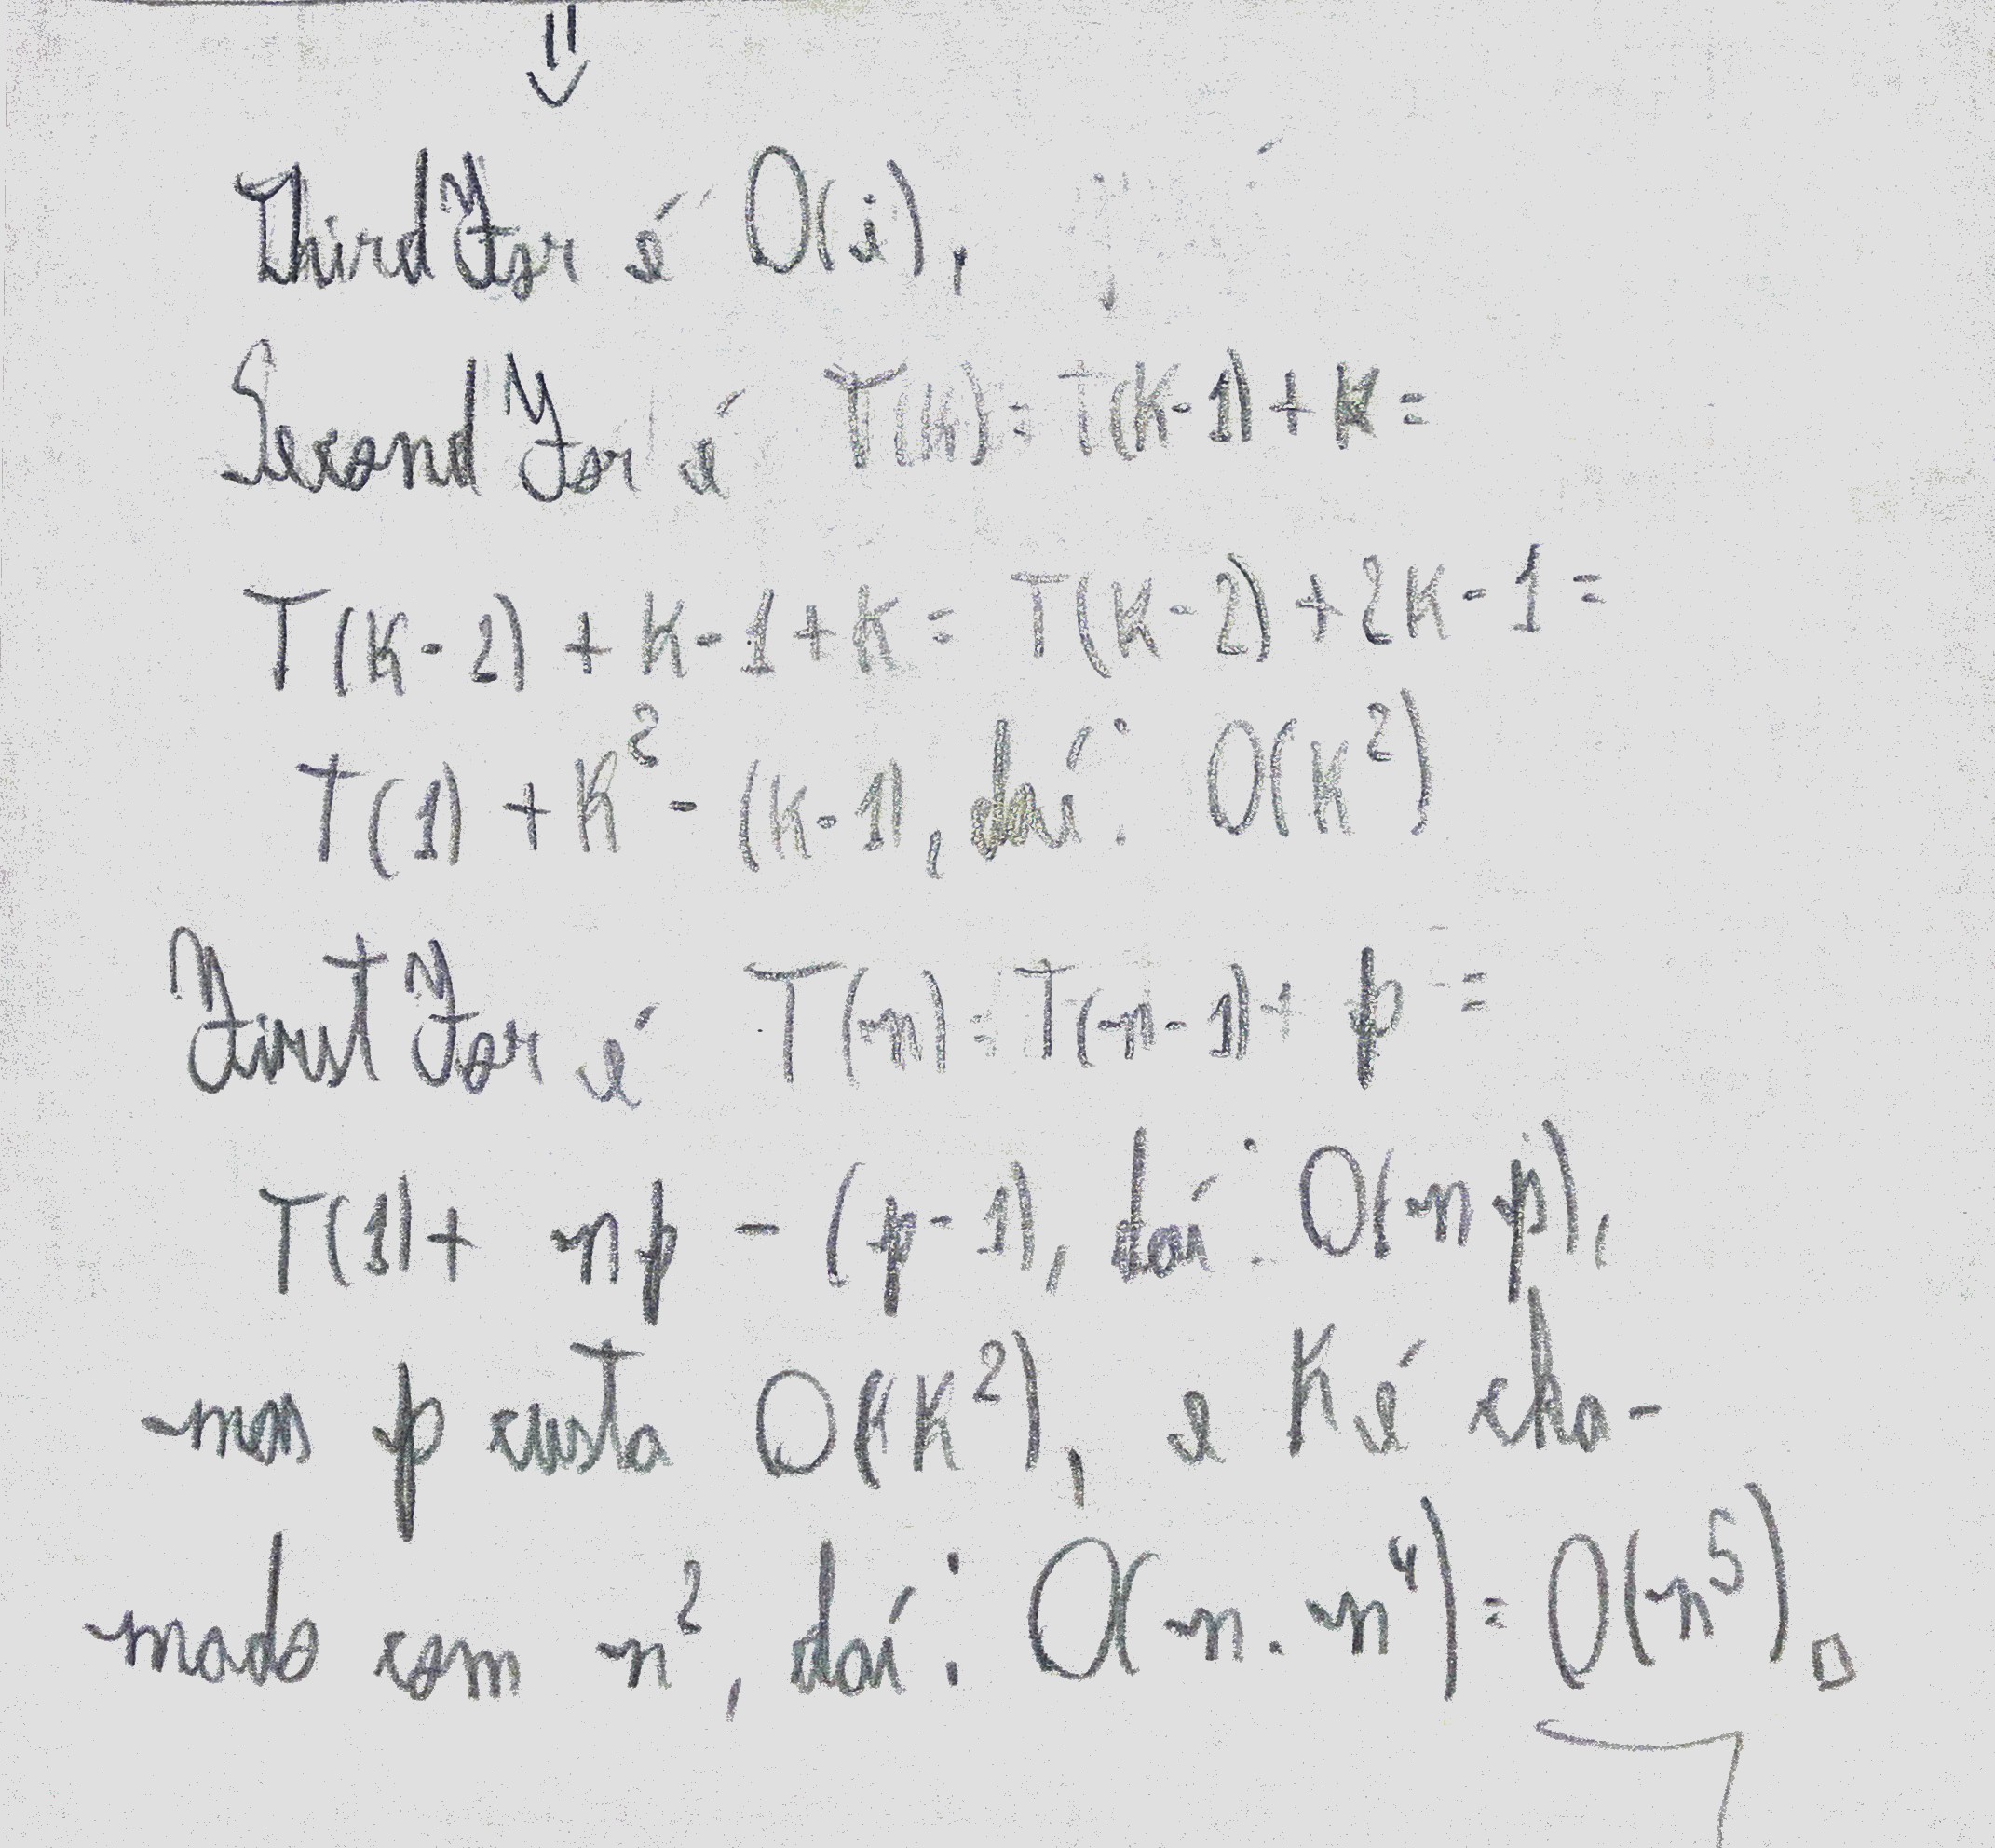 ⇓
ThirdFor é O(i),
SecondFor é T(K) = T(K-1) + K =
T(K-2) + K-1 + K = T(K-2) + 2K-1 =
T(1) + K² - (K-1), daí: O(K²)
FirstFor é T(n) = T(n-1) + p =
T(1) + np - (p-1), daí: O(np),
mas p custa O(K²), e K é cha-
mado com n², daí: O(n.n⁴) = O(n⁵). □